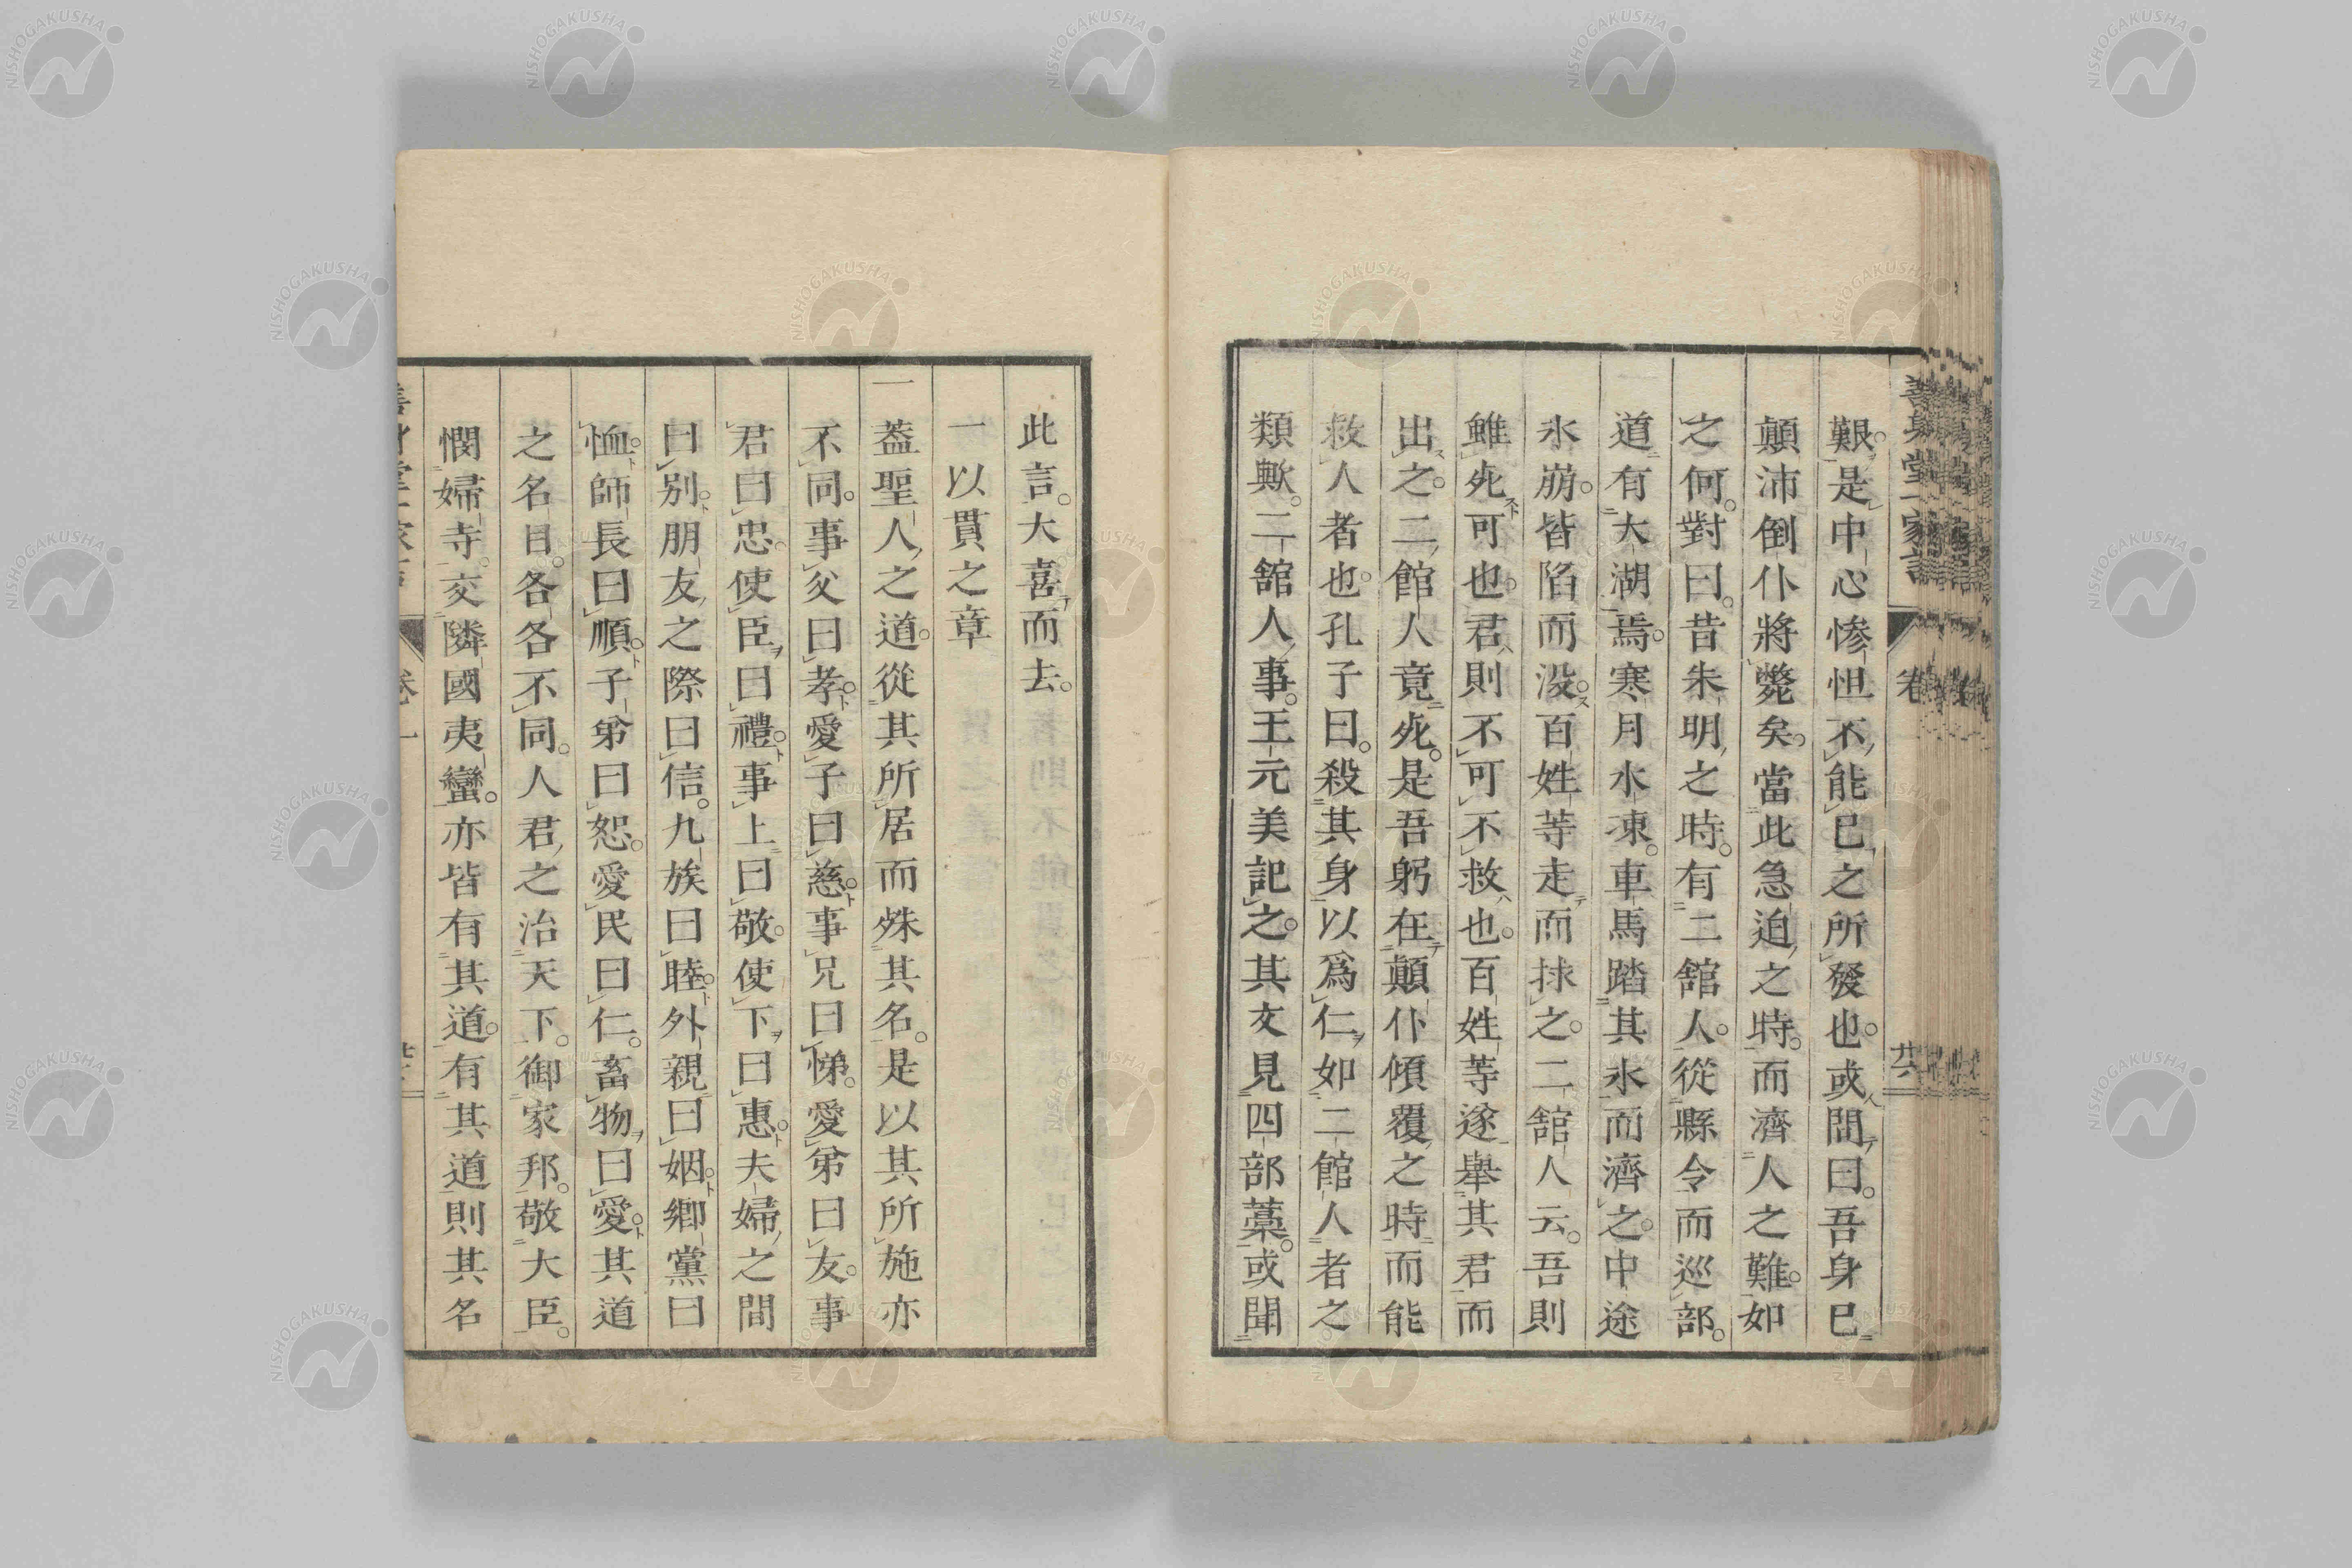 艱是中心慘怛不能已之所發也。或問曰。吾身已
顛沛倒仆將斃矣。當此急迫之時。而濟人之難。如
之何。對曰。昔朱明之時。有二舘人。從縣令而巡部。
道有大湖焉。寒月水凍。車馬踏其氷而濟之。中途
氷崩。皆陷而没。百姓等走而捄之。二舘人云。吾則
雖死可也。君則不可不救也。百姓等遂舉其君而
出之。二館人竟死。是吾躬在顛仆傾覆之時而能
救人者也。孔子曰。殺其身以爲仁。如二館人者之
類歟。二舘人事。王元美記之。其文見四部藁。或聞
此言。大喜而去。
一以貫之章
一蓋聖人之道。從其所居而殊其名。是以其所施亦
不同。事父曰孝。愛子曰慈。事兄曰悌。愛弟曰友。事
君曰忠。使臣曰禮。事上曰敬。使下曰惠。夫婦之間
曰別。朋友之際曰信。九族曰睦。外親曰姻。鄉黨曰
恤。師長曰順。子弟曰恕。愛民曰仁。畜物曰愛。其道
之名目。各各不同。人君之治天下。御家邦。敬大臣。
憫婦寺。交隣國夷蠻。亦皆有其道。有其道則其名
卷一
卷
廿六
NISHOGAKUSHA